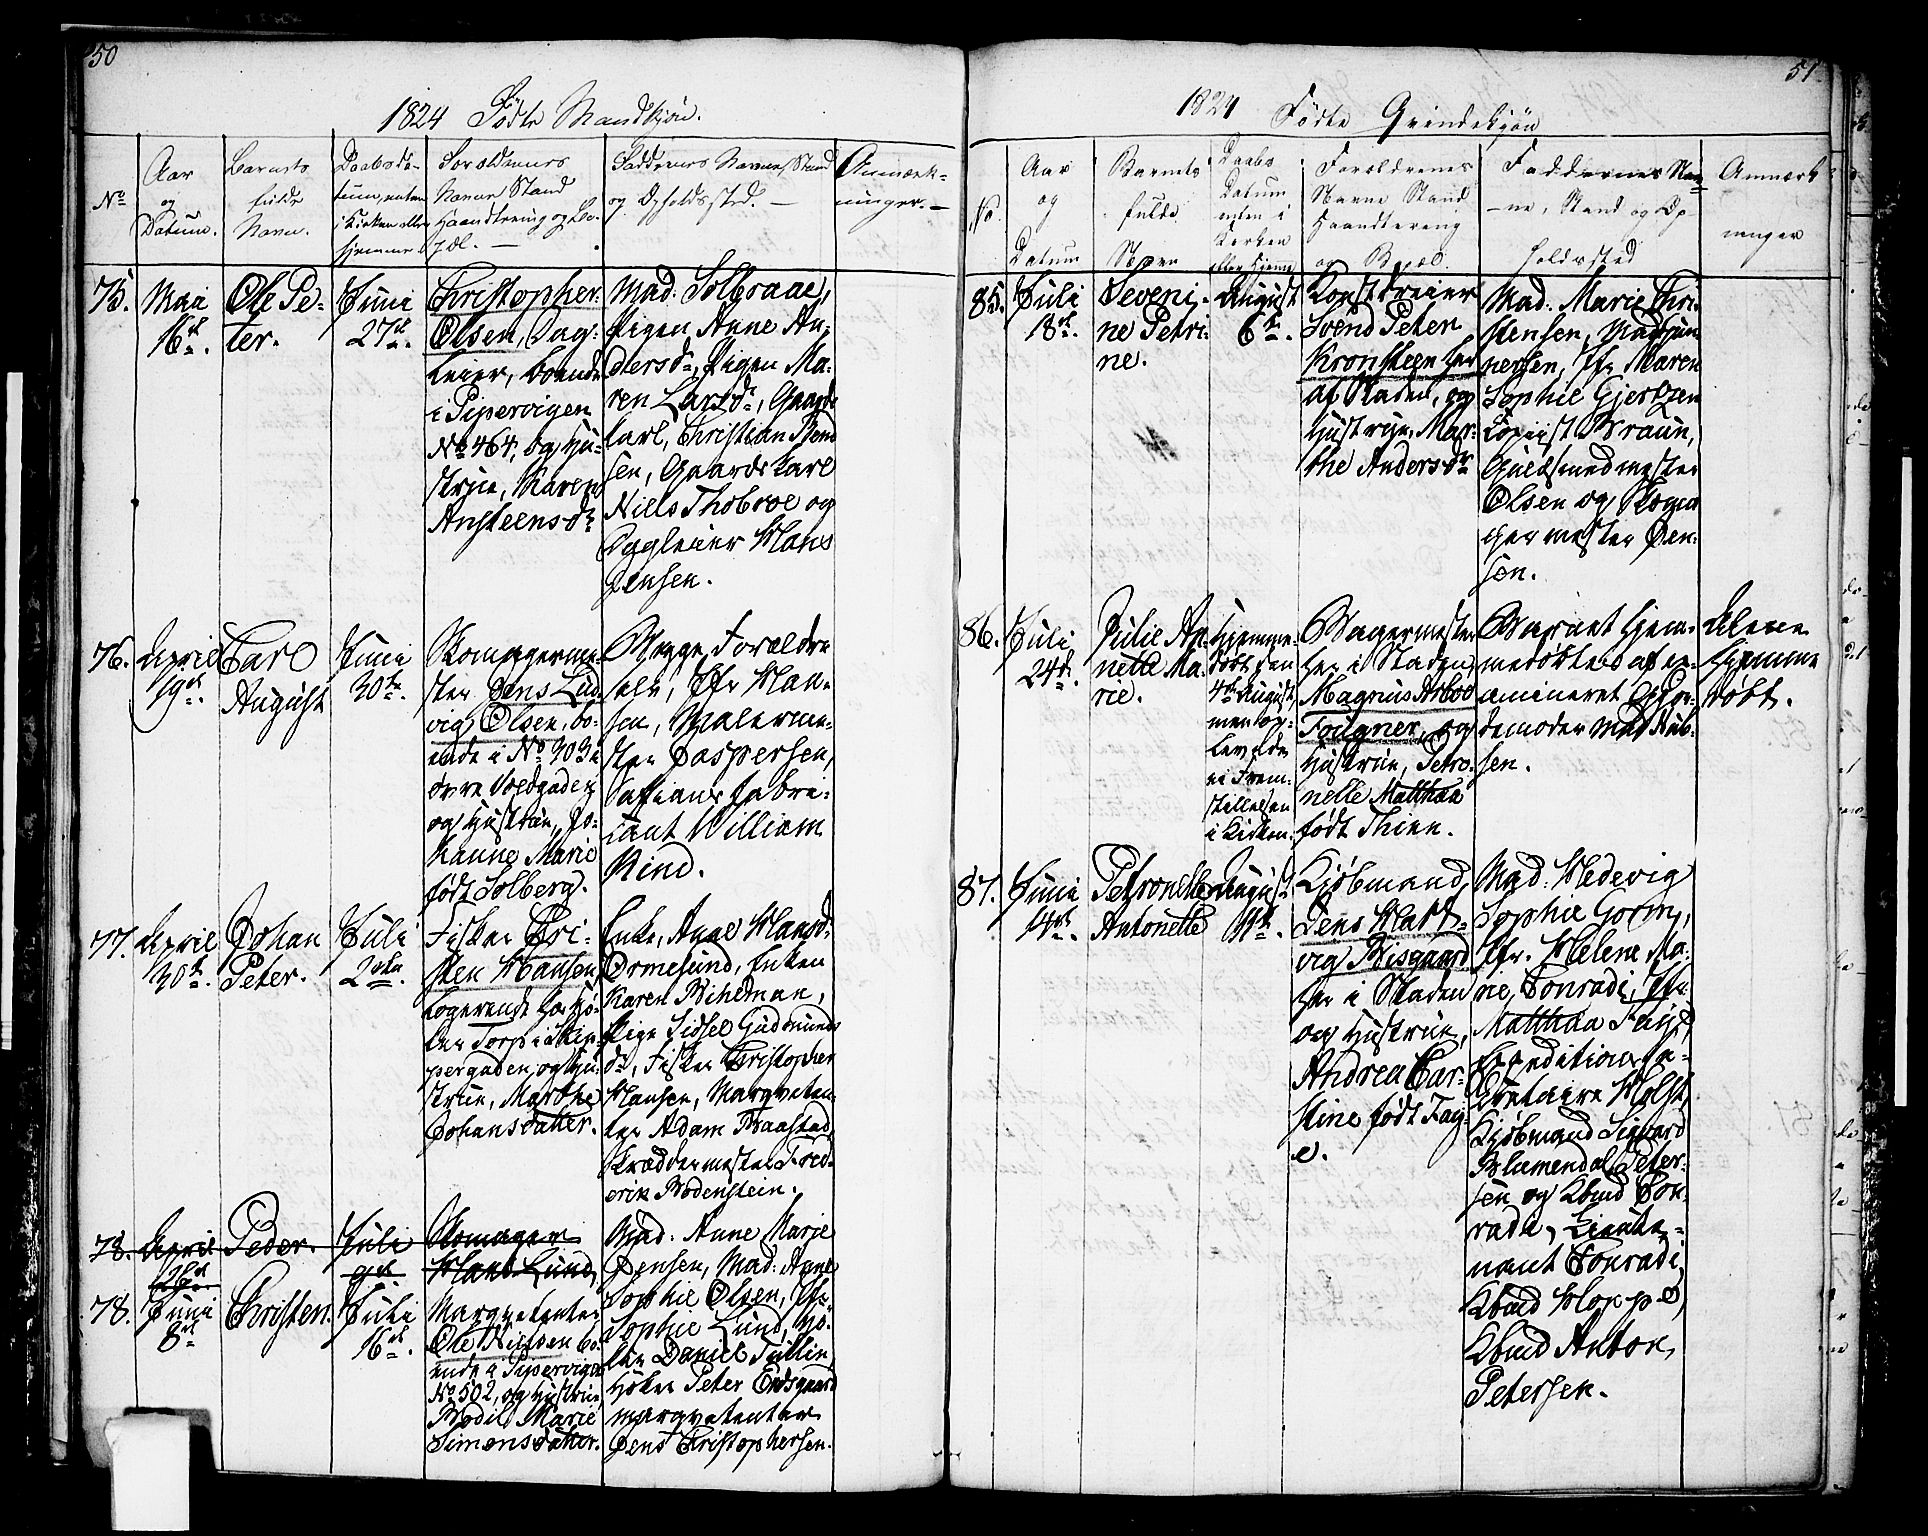 50
1824 Födte Mandkjön.
No
Aar
og
Datum.
Barnets
fulde
Navn.
Daabsda-
tum, enten
i Kirken eller
hjemme.
Forældrenes
Navne Stand
Haandtering og Bo-
pæl. —
Faddernes Navne, Stand
og Opholdssted. —
Anmærk-
ninger. —
75.
Mai
16de.
Ole Pe-
ter.
Juni
27de.
Christopher
Olsen, Dag-
leier, boende
i Pipervigen
No 464, og Hu-
strue, Karen
Ansteensdr
Mad: Solbraae,
Pigen Anne An-
dersdr, Pigen Ma-
ren Larsdr, Gaards
karl, Christian Svend
sen, Gaardskarl
Niels Thobroe og
Dagleier Hans
Jensen.
76.
April
19de.
Carl
August
Juni
30te.
Skomagerme-
ster Jens Lud
vig Olsen, bo-
ende i No 303 i
övre Voldgaden
og Hustrue, Jo-
hanne Marie
födt Solberg.
Begge Forældre
selv, Jfr Han-
sen, Malerme-
ster Jaspersen,
Safiansfabri-
kant William
Kind.
77.
April
30te.
Johan
Peter.
Juli
2den.
Fisker Chri-
sten Hansen,
logerende hos Hö-
ker Torp i Skip-
pergaden, og Hu-
strue, Marthe
Johansdatter.
Enke, Anne Hansdr
Ormesund, Enken
Karen Wihelman,
Pige Sidsel Gudmunds
dr, Fisker Christopher
Hansen, Marqveten-
ter Adam Baastad,
Skræddermester Fred-
erik Bodenstein.
78.
April
26de
Peder.
Juli
9de.
Skomager
Hans Lund,
78.
Juni
8de
Christen.
Juli
16de.
Marqvetenter
Ole Nielsen bo-
ende i Pipervigen
No 502, og Hustrue,
Bodil Marie
Simonsdatter.
Mad: Anne Marie
Jensen, Mad: Anne
Sophie Olsen, Jfr
Sophie Lund, Hö-
ker Daniel Tullin,
Höker Peter Endsgaard
Marqvetenter
Jens Christophersen.
51
1824 Födte Qvindekjön
No.
Aar
og
Datum
Barnets
fulde
Navn
Daabs
Datum
enten i
Kirken
eller hjemme
Forældrenes
Navne Stand
Haandtering
og Bopæl.
Faddernes Nav-
ne, Stand og Op-
holdssted
Anmærk
ninger
85.
Juli
18de.
Severi-
ne Petri-
ne.
August
6te.
Konstdreier
Svend Peter
Kronsteen her
af Staden, og
Hustrue, Mar-
the Andersdr
Mad: Marie Chri-
stensen, Mad
Jfr Maren
Sophie Gjertzen
Copist Braun,
Guldsmedmester
Olsen og Skoma
germester Jen-
sen.
86.
Juli
24de.
Julie An-
nette Ma-
rie.
Hjemme-
döbt den
4de August,
men op-
levede
ei Frem-
stillelsen
i Kirken.
Bagermester
her i Staden
Magnus Arboe
Fougner, og
Hustrue, Petro-
nelle Matthæa
födt Thinn.
Barnet hjem-
medöbtes af ex-
amineret Gjor-
demoder Mad Hub-
sen.
Alene
hjemme
döbt.
87.
Juni
14de.
Petronelle
Antonette
August
11te.
Kjöbmand,
Jens Hart-
vig Bisgaard
her i Staden
og Hustrue,
Andrea Car-
stine födt Fay-
e.
Mad: Hedevig
Sophie Gorm,
Jfr. Helene Ma-
rie, Conradi, Jfr
Matthæa Faye,
Expeditions Se-
cretaire Holst,
Kjöbmand Sigvard
Blumendal Peter-
sen og Kbmd Con-
radi, Lieute-
nant Conradi,
Kbmd Hoppe,
Kbmd Anton
Petersen.